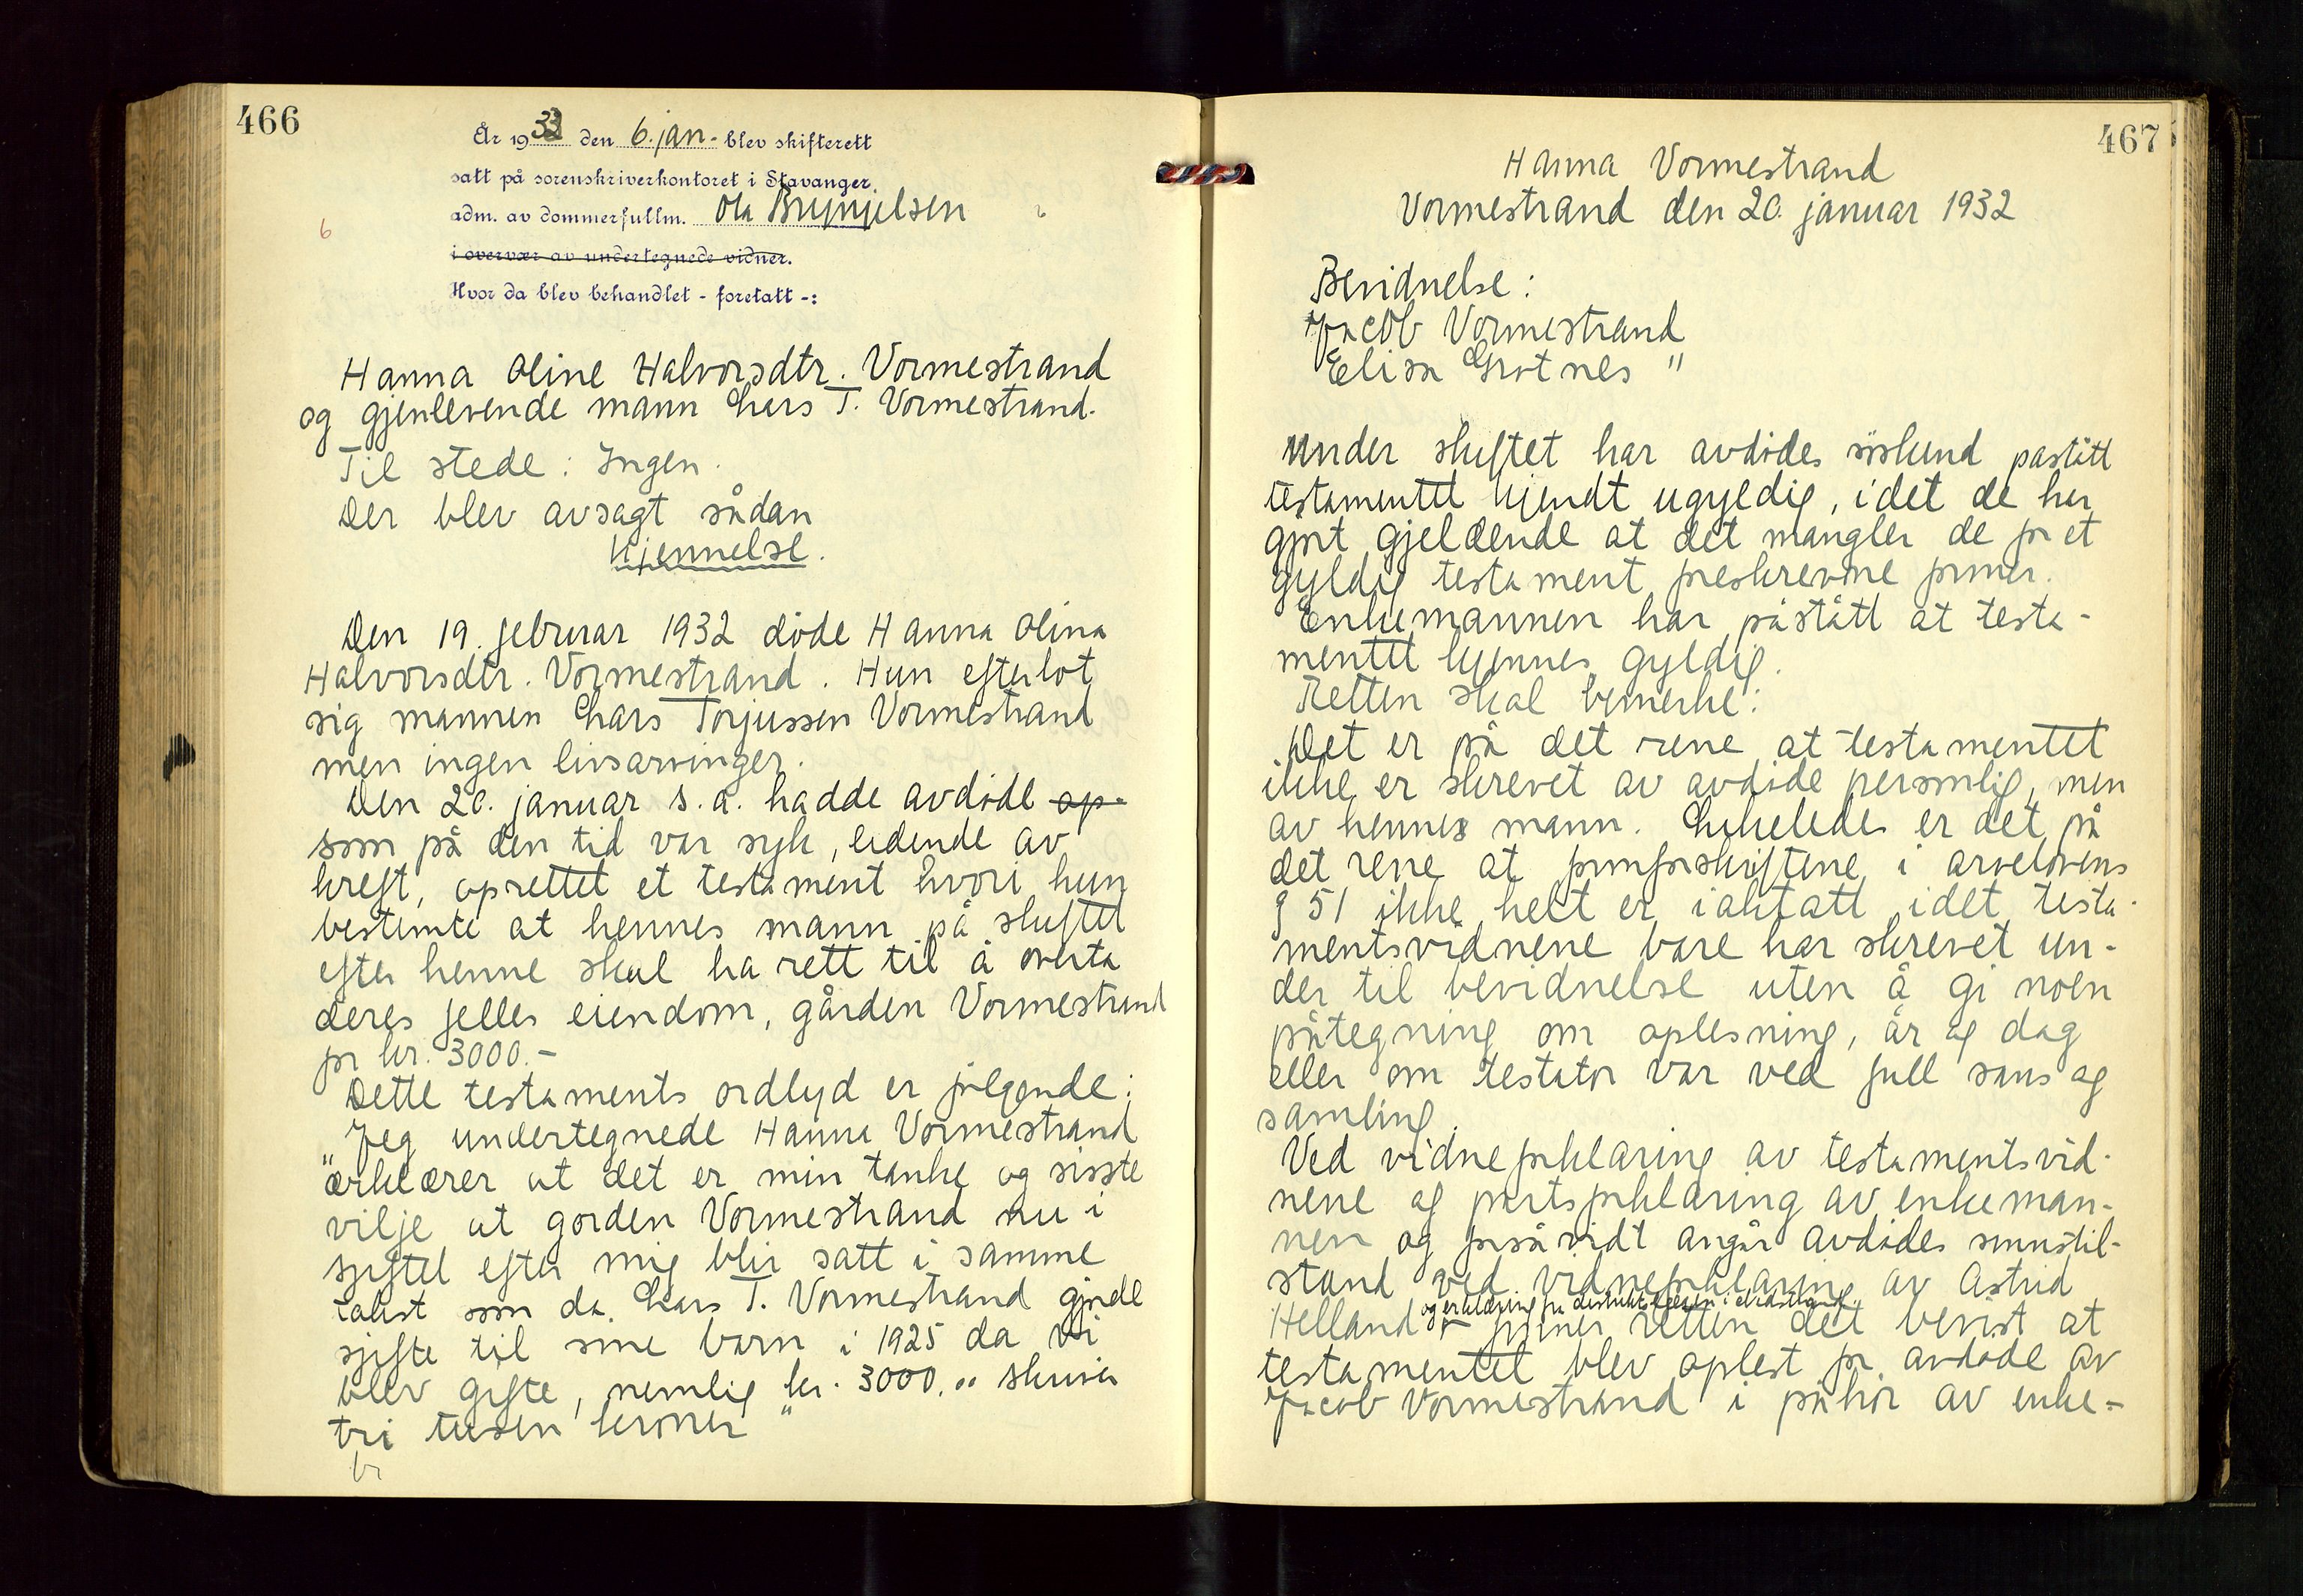 466
År 1933 den 6. jan. blev skifterett
satt på sorenskriverkontoret i Stavanger,
adm. av dommerfullm. Ola Brynjelsen
i overvær av undertegnede vidner.
Hvor da blev behandlet - foretatt -:
6
Hanna Oline Halvorsdtr. Vormestrand
og gjenlevende mann Lars T. Vormestrand.
Til stede: Ingen.
Der blev avsagt sådan
kjennelse.
Den 19. februar 1932 døde Hanna Olina
Halvorsdtr. Vormestrand. Hun efterlot
sig mannen Lars Torjussen Vormestrand
men ingen livsarvinger.
Den 20. januar s.a. hadde avdøde op-
som på den tid var syk, lidende av
kreft, oprettet et testament hvori hun
bestemte at hennes mann på skiftet
efter henne skal ha rett til å overta
deres felles eiendom, gården Vormestrand
for kr. 3000.-
Dette testaments ordlyd er følgende:
„Jeg undertegnede Hanna Vormestrand
ærklærer at det er min tanke og sisste
vilje at gorden Vormestrand nu i
sjiftet efter mig blir satt i samme
takst som da Lars T. Vormestrand gjorde
sjifte til sine barn i 1925 da vi
blev gifte, nemlig kr. 3000.„ skriver
tri tusen kroner"
467
Hanna Vormestrand
Vormestrand den 20. januar 1932
Bevidnelse:
Jacob Vormestrand
Elisa Grotnes "
Under skiftet har avdødes søskend påstått
testamentet kjendt ugyldig, idet de har
gjort gjeldende at det mangler de for et
gyldig testament foreskrevne former.
Enkemannen har påstått at testa-
mentet kjennes gyldig.
Retten skal bemerke:
Det er på det rene at testamentet
ikke er skrevet av avdøde personlig, men
av hennes mann. Likeledes er det på
det rene at formforskriftene i arvelovens
§ 51 ikke helt er iakttatt idet testa-
mentsvidnene bare har skrevet un-
der til bevidnelse uten å gi noen
påtegning om oplesning, år og dag
eller om testator var ved full sans og
samling.
Ved vidneforklaring av testamentsvid-
nene og partsforklaring av enkeman-
nen og forsåvidt angår avdødes sinnstil-
stand ved vidneforklaring av Astrid
og erklæring fra distriktslegen i
Helland finner retten det bevist at
testamentet blev oplest for avdøde av
Jacob Vormestrand i påhør av enke-